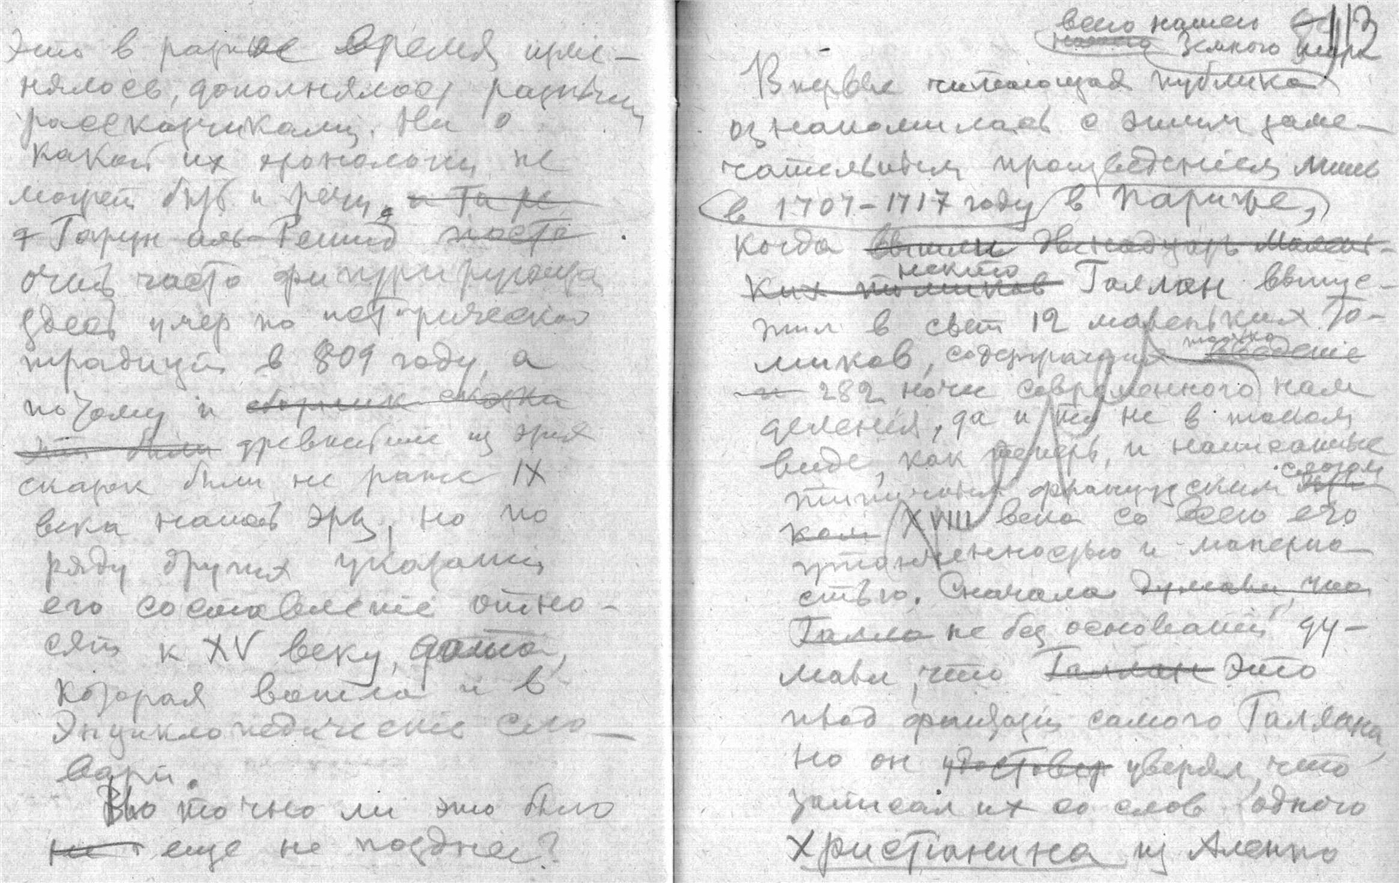 это в разные время изме-
нялось, дополнялось разными
рассказчиками. Ни о
какой их хронологии не
может быть и речи,
Гарун аль-Решид
очень часто фигурирующий
здесь умер по исторической
традиции в 809 году, а
потому и сборник сказка
древнейшие из этих
сказок были не ранее IX
века нашей эры, но по
ряду других указаний
его составление отно-
сят к XV веку, дата,
которая вошла и в
Энциклопедические сло-
вари.
Но точно ли это было
не еще не позднее?
всего нашего 113
земного шара
Впервые читающая публика
ознакомилась с этим заме-
чательным произведением лишь
в 1707-1717 году в Париже,
когда вышли двенадцать малень-
ких томиков некто Галлан выпус-
тил в свет 12 маленьких то-
миков, содержащих только
282 ночи современного нам
деления, да и то не в таком
виде, как теперь, и написанные
типичным французским слогом
XVIII века со всею его
утонченностью и манерно
стью. Сначала думали, что
Галла не без оснований ду-
мали, что Галлан это
плод фантазии самого Галлана,
но он удостовер уверял, что
записал их со слов одного
Христианина из Алеппо